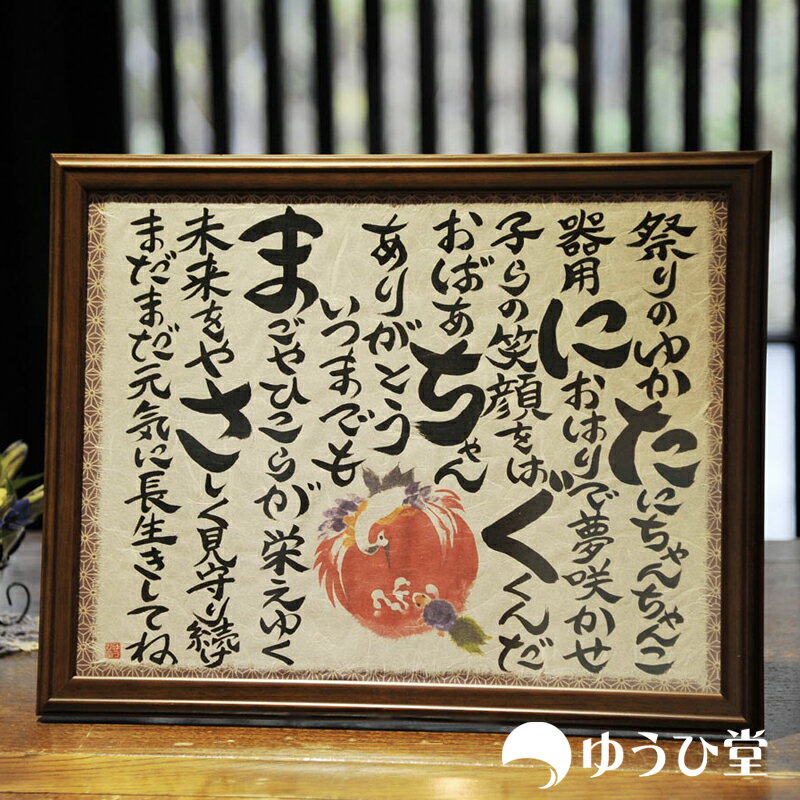 祭りのゆかたにちゃんちゃんこ
器用におはりで夢咲かせ
子らの笑顔をはぐくんだ
おばあちゃん
ありがとう
いつまでも
まごやひこらが栄えゆく
未来をやさしく見守り続け
まだまだ元気に長生きしてね
ゆうひ堂